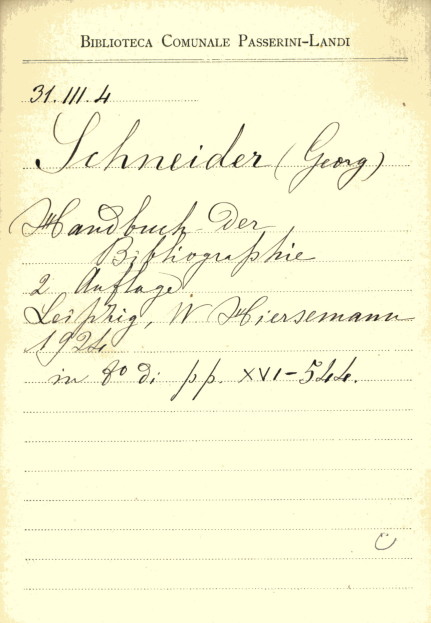 BIBLIOTECA COMUNALE PASSERINI-LANDI
31.III.4
Schneider (Georg)
Handbuch der
Bibliographie
2 Auflage
Leipzig, W Hiersemann
1924
in 8º di pp. XVI-544.